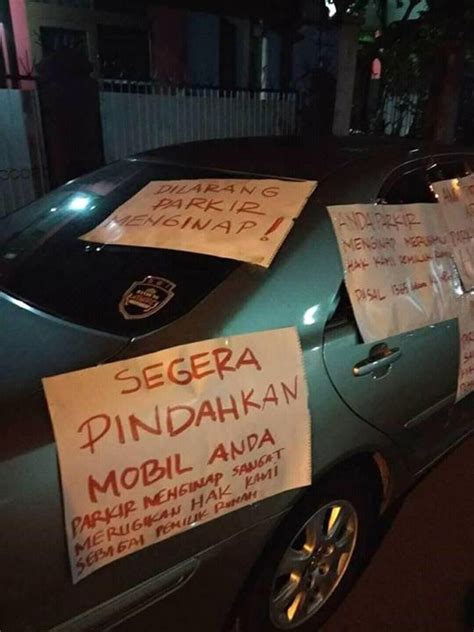 DILARANG
PARKIR
MENGINAP!
ANDA PARKIR
MENGINAP
HAK KAMI PEMILIK
PASAL
SEGERA
PINDAHKAN
MOBIL ANDA
PARKIR MENGINAP SANGAT
MERUGIKAN HAK KAMI
SEBAGAI PEMILIK RUMAH